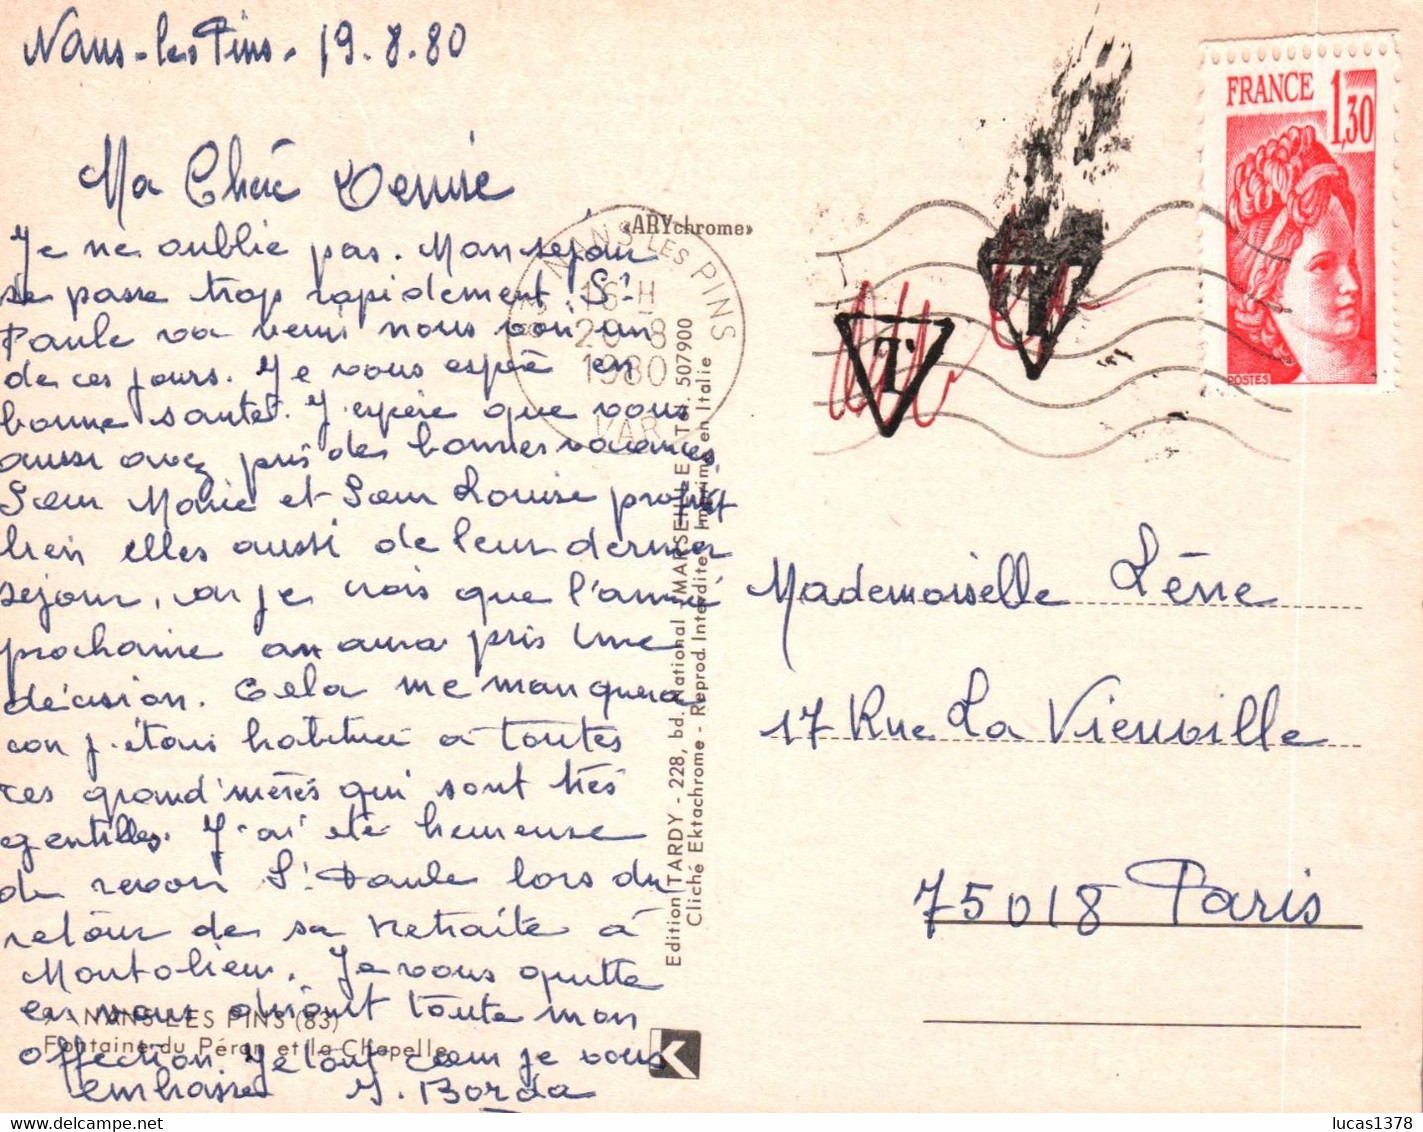 Nans-les Pins. 19.8.80
Ma Chère Denise
Je ne oublie pas. Mon séjour
se passe trop rapidement! Sr
Paule va venir nous voir un
de ces jours. Je vous espère en
bonne santé. J'espère que vous
aussi avez pris des bonnes vacances
Sœur Marie et Sœur Louise profitent
bien elles aussi de leur dernier
séjour, car je crois que l'année
prochaine on aura pris une
décision. Cela me manquera
car j'étais habituée à toutes
ces grand'mères qui sont très
gentilles. J'ai été heureuse
de revoir Sr Paule lors du
retour de sa retraite à
Montolieu. Je vous quitte
en vous disant toute mon
affection. Je tout cœur je vous
embrasse J. Borda
NANS LES PINS (83)
Fontaine du Péran et la Chapelle
«ARYchrome»
Edition TARDY - 228, bd. National - MARSEILLE - Tél. 507900
Cliché Ektachrome - Reprod. Interdite - Imprimé en Italie
83 NANS LES PINS
16 H
20 - 8
1980
VAR
T
T
FRANCE
1,30
POSTES
Mademoiselle Lène
17 Rue La Vieuville
75018 Paris
K
delcampe.net
lucas1378